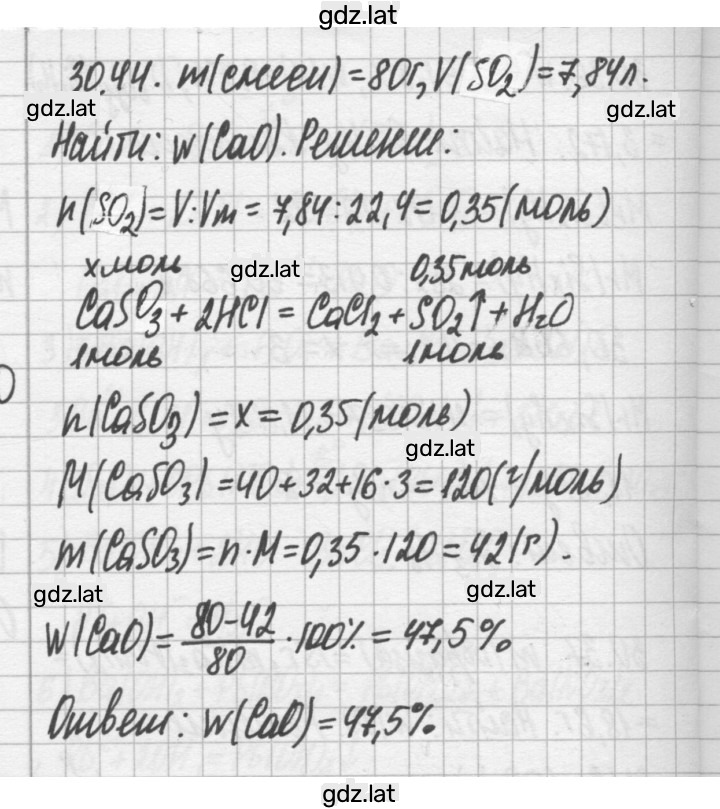 gdz.lat
30.44. m(смеси) = 80г, V(SO₂) = 7,84л.
gdz.lat gdz.lat
Найти: w(CaO). Решение:
n(SO₂) = V:Vm = 7,84:22,4 = 0,35(моль)
x моль gdz.lat 0,35моль
CaSO₃ + 2HCl = CaCl₂ + SO₂↑ + H₂O
1моль 1моль
n(CaSO₃) = x = 0,35(моль)
gdz.lat
M(CaSO₃) = 40+32+16·3 = 120(г/моль)
m(CaSO₃) = n·M = 0,35·120 = 42(г).
gdz.lat gdz.lat
W(CaO) = 80-42/80 · 100% = 47,5%
Ответ: w(CaO) = 47,5%
gdz.lat